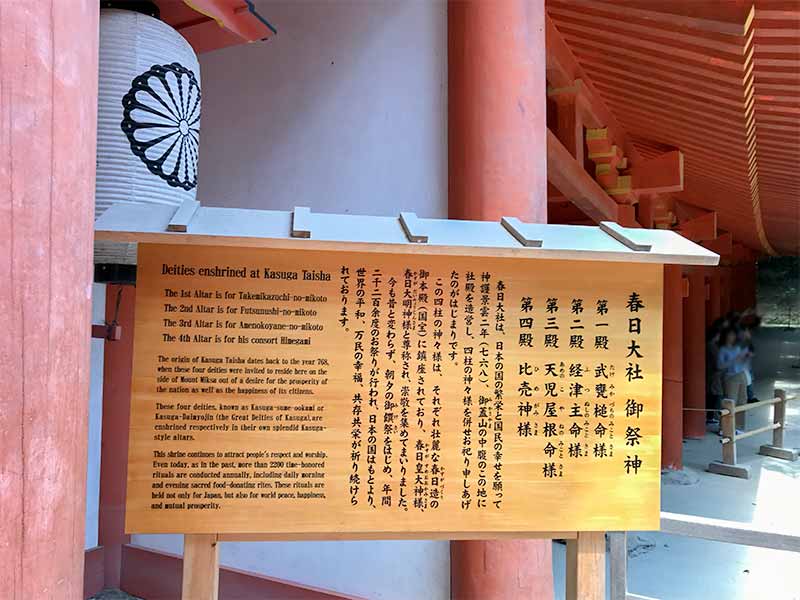 Deities enshrined at Kasuga Taisha
The 1st Altar is for Takemikazuchi-no-mikoto
The 2nd Altar is for Futsunushi-no-mikoto
The 3rd Altar is for Amenokoyane-no-mikoto
The 4th Altar is for his consort Himegami
The origin of Kasuga Taisha dates back to the year 768,
when these four deities were invited to reside here on the
side of Mount Mikasa out of a desire for the prosperity of
the nation as well as the happiness of its citizens.
These four deities, known as Kasuga-sume-ookami or
Kasuga-Daimyojin (the Great Deities of Kasuga), are
enshrined respectively in their own splendid Kasuga-
style altars.
This shrine continues to attract people's respect and worship.
Even today, as in the past, more than 2200 time-honored
rituals are conducted annually, including daily morning
and evening sacred food-donating rites. These rituals are
held not only for Japan, but also for world peace, happiness,
and mutual prosperity.
春日大社 御祭神
第一殿 武甕槌命様
第二殿 経津主命様
第三殿 天児屋根命様
第四殿 比売神様
春日大社は、日本の国の繁栄と国民の幸せを願って
神護景雲二年(七六八)、御蓋山の中腹のこの地に
社殿を造営し、四柱の神々様を併せお祀り申しあげ
たのがはじまりです。
この四柱の神々様は、それぞれ壮麗な春日造の
御本殿(国宝)に鎮座されており、春日皇大神様、
春日大明神様と尊称され、崇敬を集めてまいりました。
今も昔と変わらず、朝夕の御饌祭をはじめ、年間
二千二百余度のお祭りが行われ、日本の国はもとより、
世界の平和、万民の幸福、共存共栄が祈り続けら
れております。